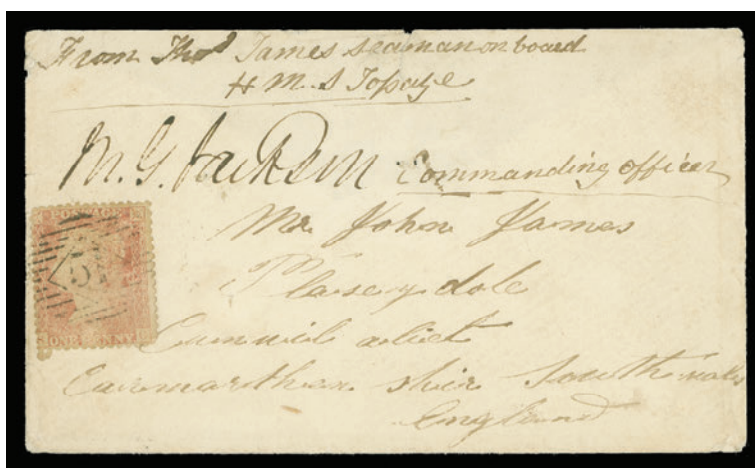 From Thos James seaman on board
H M S Topaze
M. G. Jackson Commanding officer
Mr John James
Plas y dole
Cunwil
Carmarthen shire South wales
England
POSTAGE
ONE PENNY